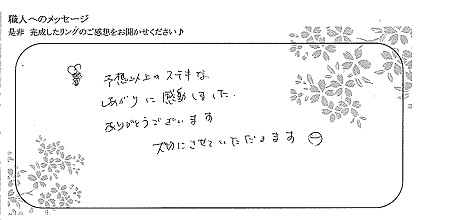 職人へのメッセージ
是非 完成したリングのご感想をお聞かせください♪
予想以上のステキな
しあがりに感動しました。
ありがとうございます
大切にさせていただきます